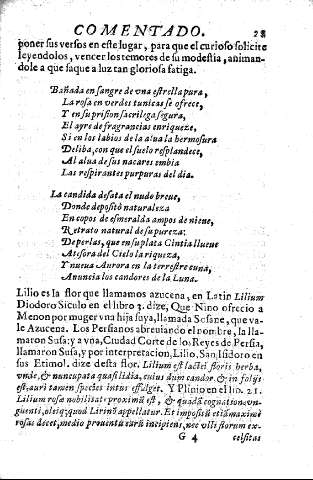 COMENTADO. 28
poner sus versos en este lugar, para que el curioso solicite
leyendolos, vencer los temores de su modestia, animan-
dole a que saque a luz tan gloriosa fatiga.
Bañada en sangre de vna estrella pura,
La rosa en verdes tunicas se ofrece,
Y en su prision sacrilega segura,
El ayre de fragrancias enriqueze,
Si en los labios de la alua la hermosura
Deliba, con que el suelo resplandece,
Al alua de sus nacares embia
Las respirantes purpuras del dia.
La candida desata el nudo breue,
Donde depositò naturaleza
En copos de esmeralda ampos de nieue,
Retrato natural de su pureza:
De perlas, que en su plata Cintia llueue
Atesora del Cielo la riqueza,
Y nueua Aurora en la terrestre cuna,
Anuncia los candores de la Luna.
Lilio es la flor que llamamos azucena, en Latin Lilium
Diodoro Siculo en el libro 3. dize, Que Nino ofrecio a
Menon por muger vna hija suya, llamada Sosane, que va-
le Azucena. Los Persianos abreuiando el nombre, la lla-
maron Susa: y a vna, Ciudad Corte de los Reyes de Persia,
llamaron Susa, y por interpretacion, Lilio, San Isidoro en
sus Etimol. dize desta flor. Lilium est lactei floris herba,
vnde, & nuncupata quasi lidia, cuius dum candor. & in folijs
est, auri tamen species intus effulget. Y Plinio en el lib. 21.
Lilium rosæ nobilitate proximũ est, & quadã cognatione vn-
guenti, oleiq; quod Lirinõ appellatur. Et impositũ etiã maximè
rosas decet, medio prouentu earũ incipiens, nec vlli florum ex-
G 4 celsitas